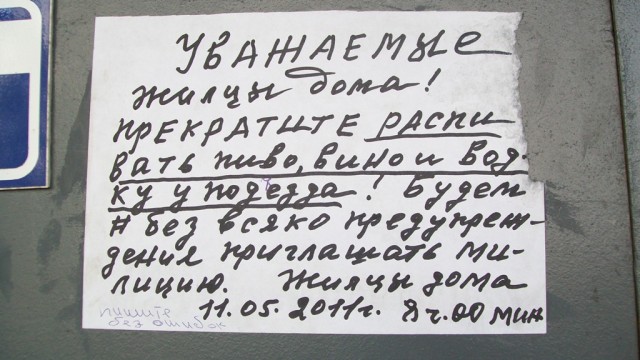 УВАЖАЕМЫЕ
жилцы дома!
ПРЕКРАТИТЕ РАСПИ
ВАТЬ ПИВО, ВИНО И ВОД-
КУ У ПОДЕЗДА! Будем
И без всяко предупреж-
дения приглашать ми-
лицию. Жилцы дома
11.05.2011г. 9 ч.00 мин
пишите
без ошибок